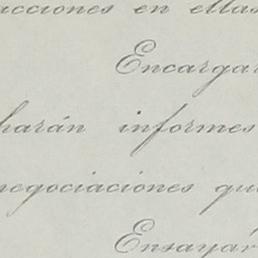 acciones en ellas
Encargar
harán informes
negociaciones qu
Ensayar